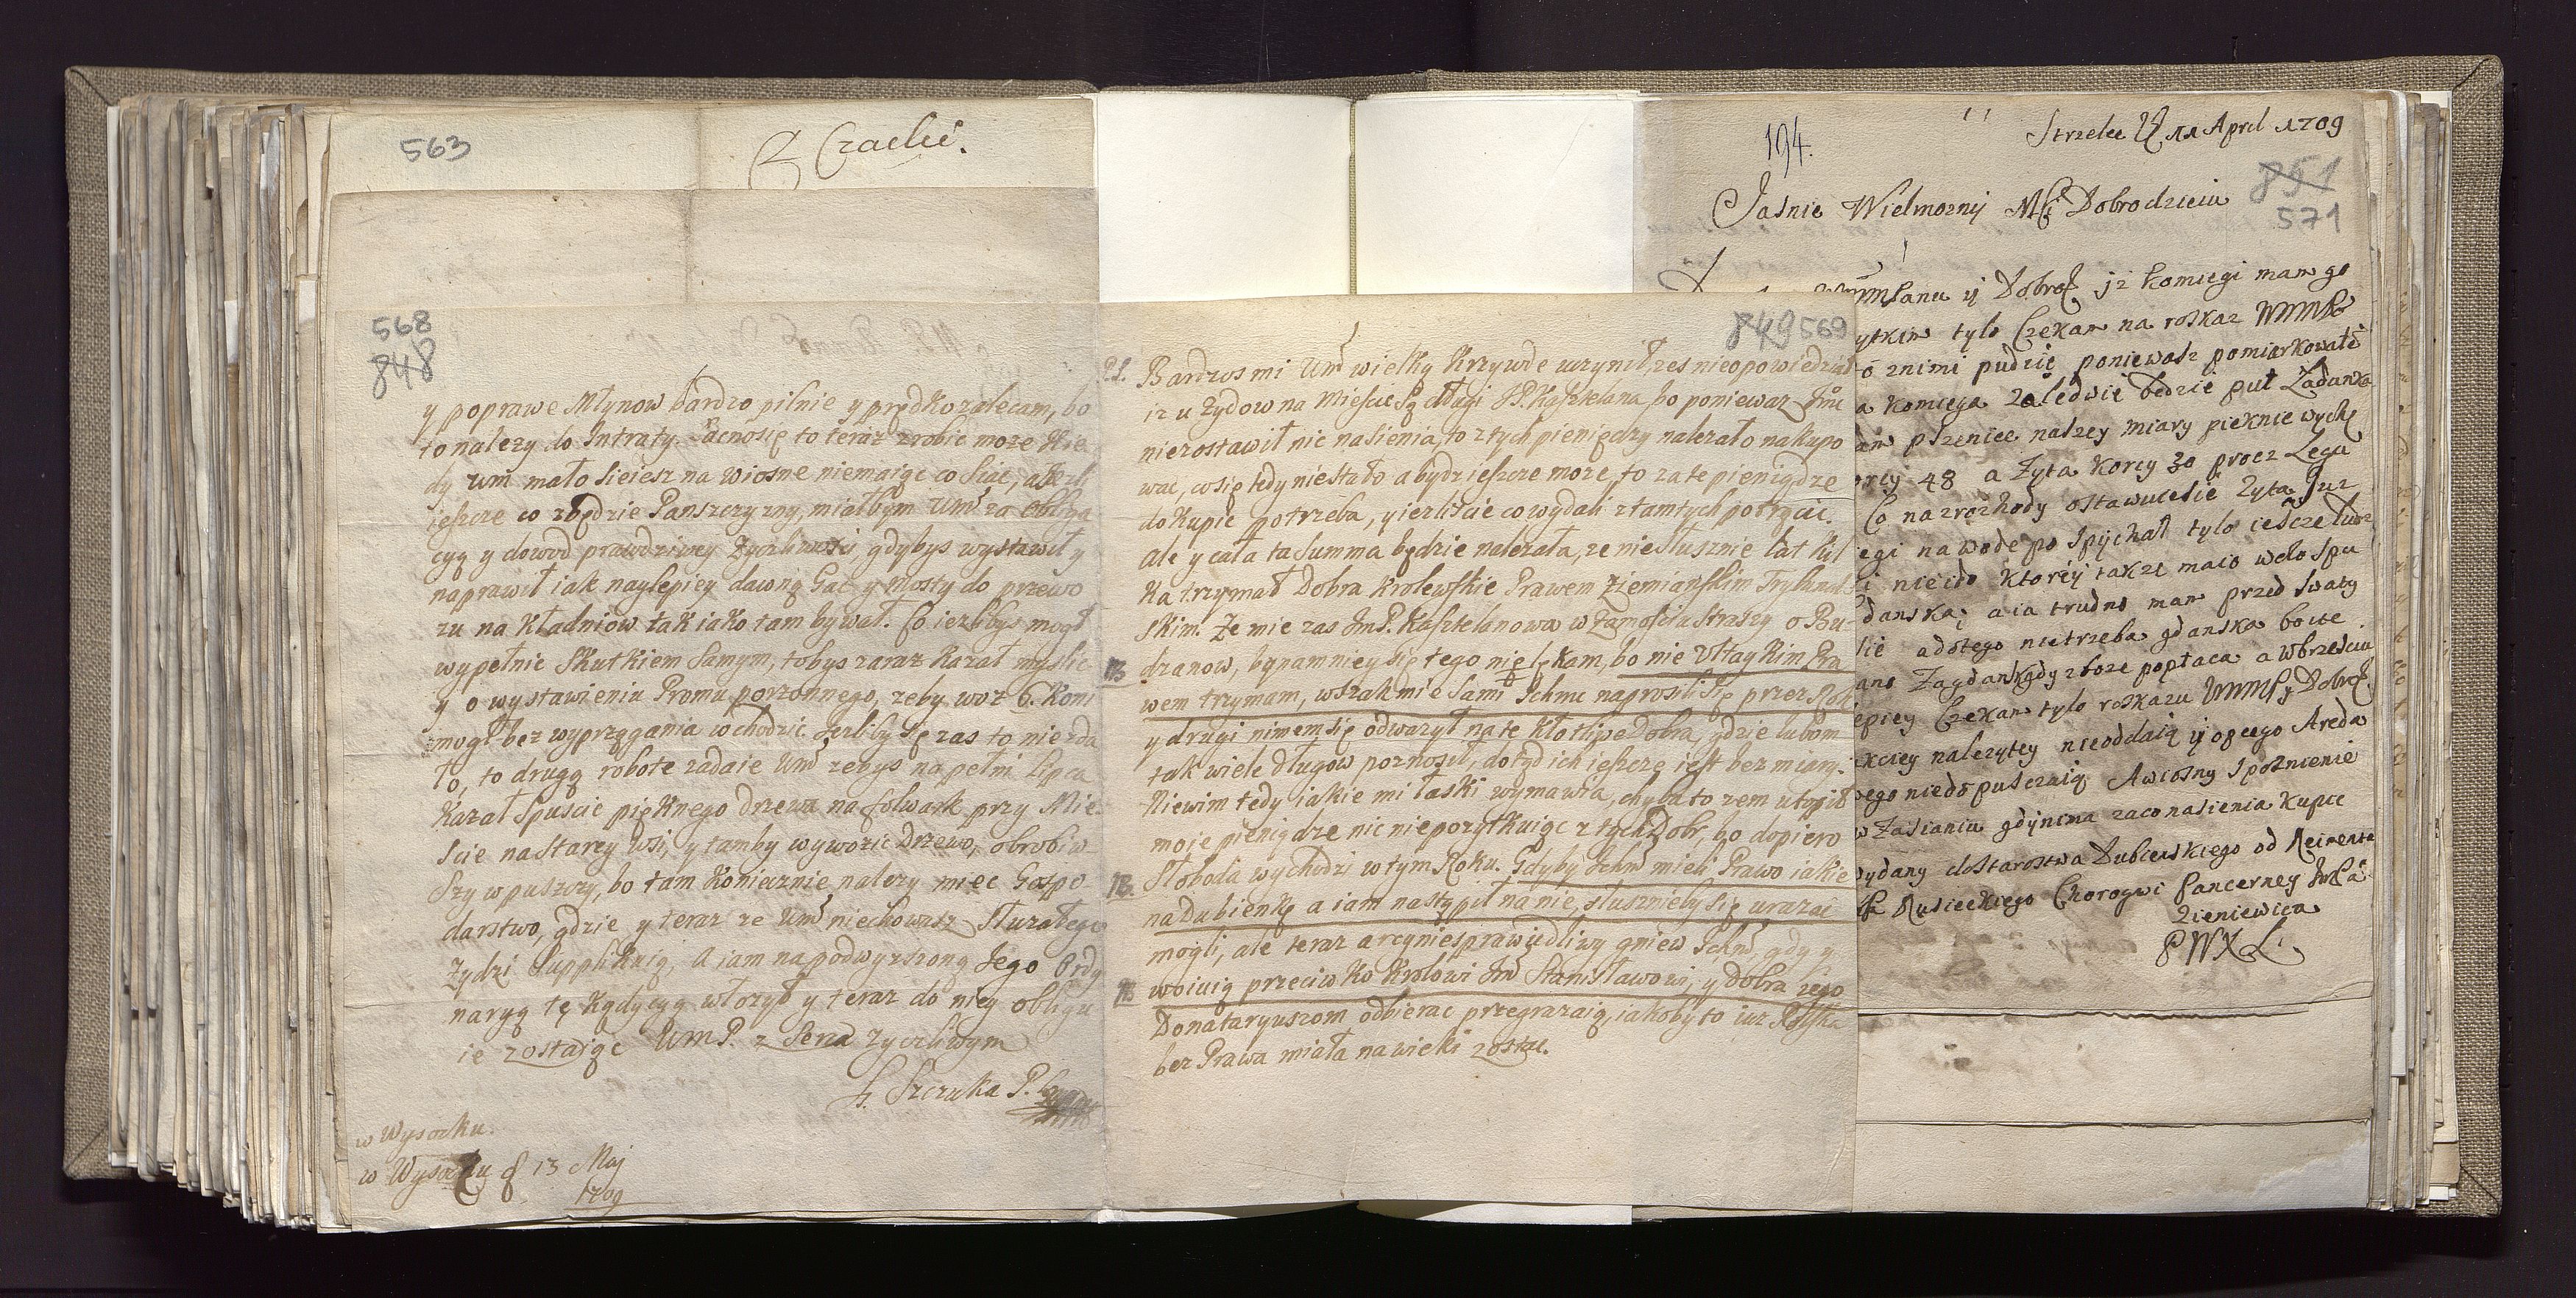 563
Z Czaclu.
568
848
y poprawe Młynow bardzo pilnie y prędko zalecam, bo
to nalezy do Intraty. to teraz zrobic moze Kie
dy Um mało sieiesz na wiosne niemaiąc co Siac, a Iezli
ieszcze co zbędzie Panszczyzny, miałbym Umć za obliga
cyą y dowod prawdziwey Zyczliwosci, gdybys wystawił y
naprawił iak naylepiey dawną Gac y Mosty do przewo
zu na Kładniow tak iako tam bywał. Co iezlibys mogł
wypełnic Skutkiem Samym, tobys zaraz kazał myslic
y o wystawieniu Promu porzonnego, zeby woz 6. Koni
mogł bez wyprzągania wchodzic. Iezliby Się zas to niezda
ło, to drugą robote zadaie Umć zebys na pełni Lipca
Kazał Spuscic pięknego drzewa na folwark przy Mie-
scie na Starey Wsi, y tamby wywozic Drzewo, obrobiw-
szy w puszczy, bo tam koniecznie nalezy miec Gospo-
darstwo, gdzie y teraz ze Umć niechowasz Sturałego
Zydzi Supplikuią, A iam na podwyzszoną Iego Ordy
naryą tę Kądycyą włozył y teraz do niey obligu
ie zostaiąc UmP. z Serca Zyczliwym
S. Szczuka P.
w Wysocku.
w Wysocku d 13 Maj
1709
849 569
P.S. Bardzos mi Umć wielką Krzywde uczynił, zes nieopowiedział
iz u Zydow na Miescie Są długi JP. Kasztelana bo poniewaz Jmć
niezostawił nic nasienia, to z tych pieniędzy nalezało nakupo
wac, co się tedy niestało a bydz ieszcze moze, to za te pieniądze
dokupic potrzeba, y iezliscie co wydali z tamtych potrącic.
Ale y cała ta Summa będzie nalezała, ze niesłusznie lat kil
ka trzymał Dobra Krolewskie Prawem Ziemianskim Trybunal-
skim. Ze mie zas JmP. Kasztelanowa w Zamosciu straszy o Bu-
NB dzanow, bynamniey się tego nielękam, bo nie Ułtaykim Pra
wem trzymam, wszak mie Sami Ichmc naprosili się przez Rok
y drugi nimem się odwazył na te Kłotliwe Dobra, gdzie lubom
tak wiele długow poznosił, dotąd ich ieszcze iest bez miary.
Niewim tedy iakie mi łaski wymawia, chyba to zem utopił
moje pieniądze nic niepozytkuiąc z tych Dobr, bo dopiero
NB. Słoboda wychodzi w tym Roku. Gdyby Ichmć mieli Prawo iakie
na Dubienkę a iam nastąpił na nie, słusznieby się urazac
mogli, ale teraz arcyniesprawiedliwy gniew Ichmć, gdy y
NB woiuią przeciwko Krolowi Jmć Stanisławowi, y Dobra iego
Donataryuszom odbierac przegrazaią, iakoby to iuz Polska
bez Prawa miała na wieki zostac.
194.
Strzelce 11 April 1709
851
571
Jasnie Wielmozny Mći Dobrodzieiu
WMMPanu y Dobrož jz Komiegi mam go
tylo Czekam na roskaz WMMP.
znimi pudzię poniewasz pomiarkowałe
a komiega Zaledwie będzie put Zadanka
pszenice naszey miary pieknie wychę
48 a Zyta Korcy 30 procz Legu
Co nazrozhody ostawucesie Zyta Juz
na wode po Spijchał tylo iescze
nieido Ktorėy takze maio wcło spu
danska; a ia trudno mam przed Swaty
lie adotego nietrzeba gdanska bo ice
Zagdanskgdy zboze popłaca a wbrzesciu
epiey Czekam tylo roskazu WMMP y Dobrož
nalezytey nieoddaią y opcego Areda
ego niedopusczaią. Awiosny Spoznienie
w Zasianiu gdijnima zaco nasienia kupce
wydany doStarostwa Dubienskiego od Reimenta
Rusieckiego Chorogwi Pancerney JmPa
Zieniewica
PWXL.